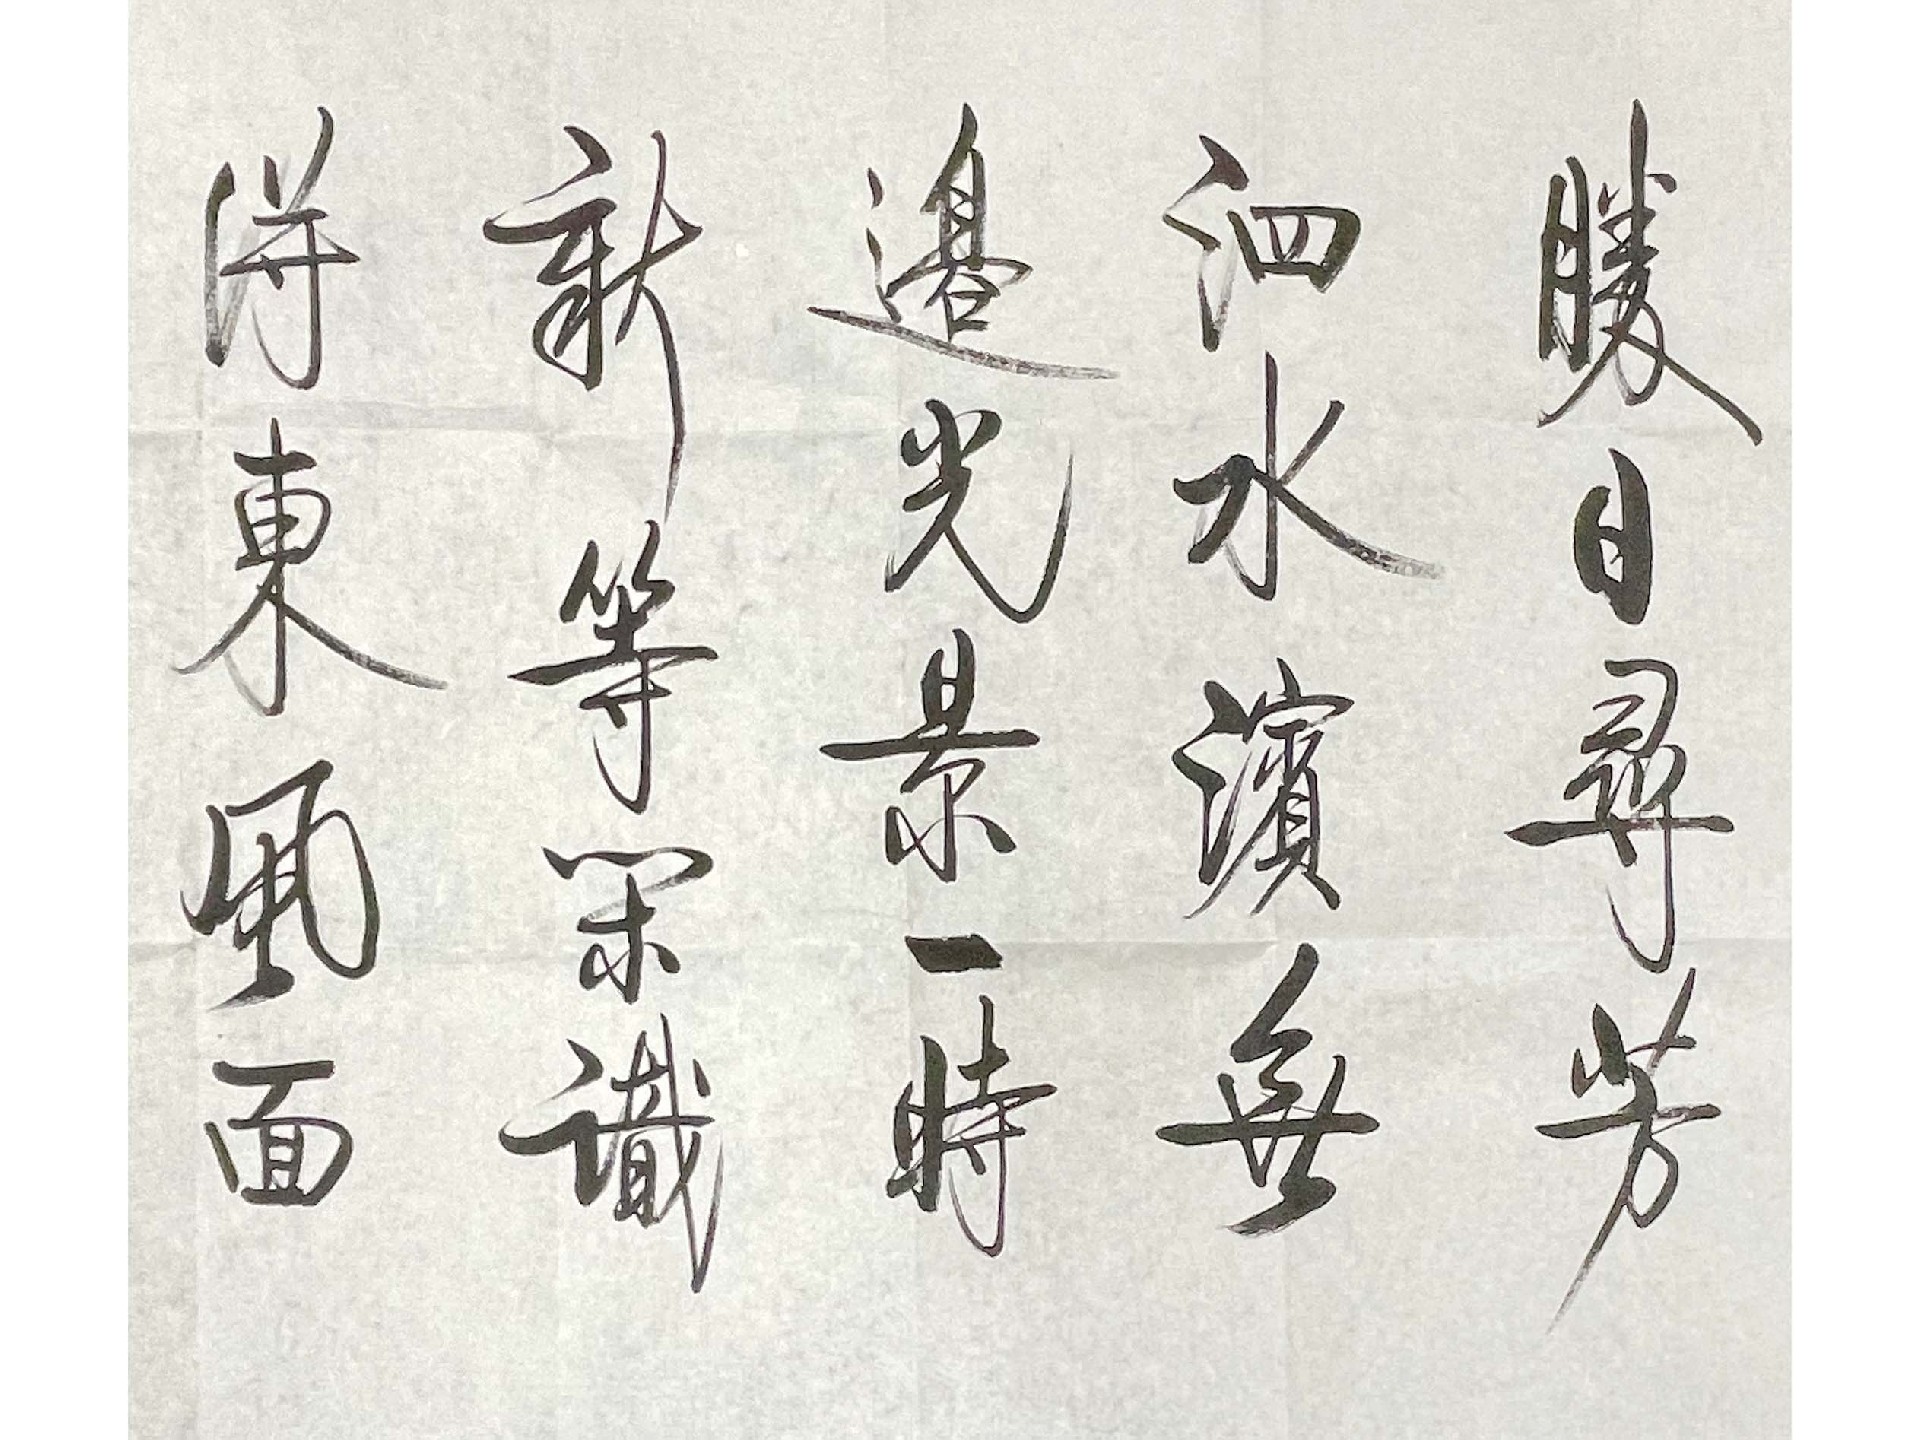 勝日尋芳
泗水濱無
邊光景一時
新等閑識
得東風面